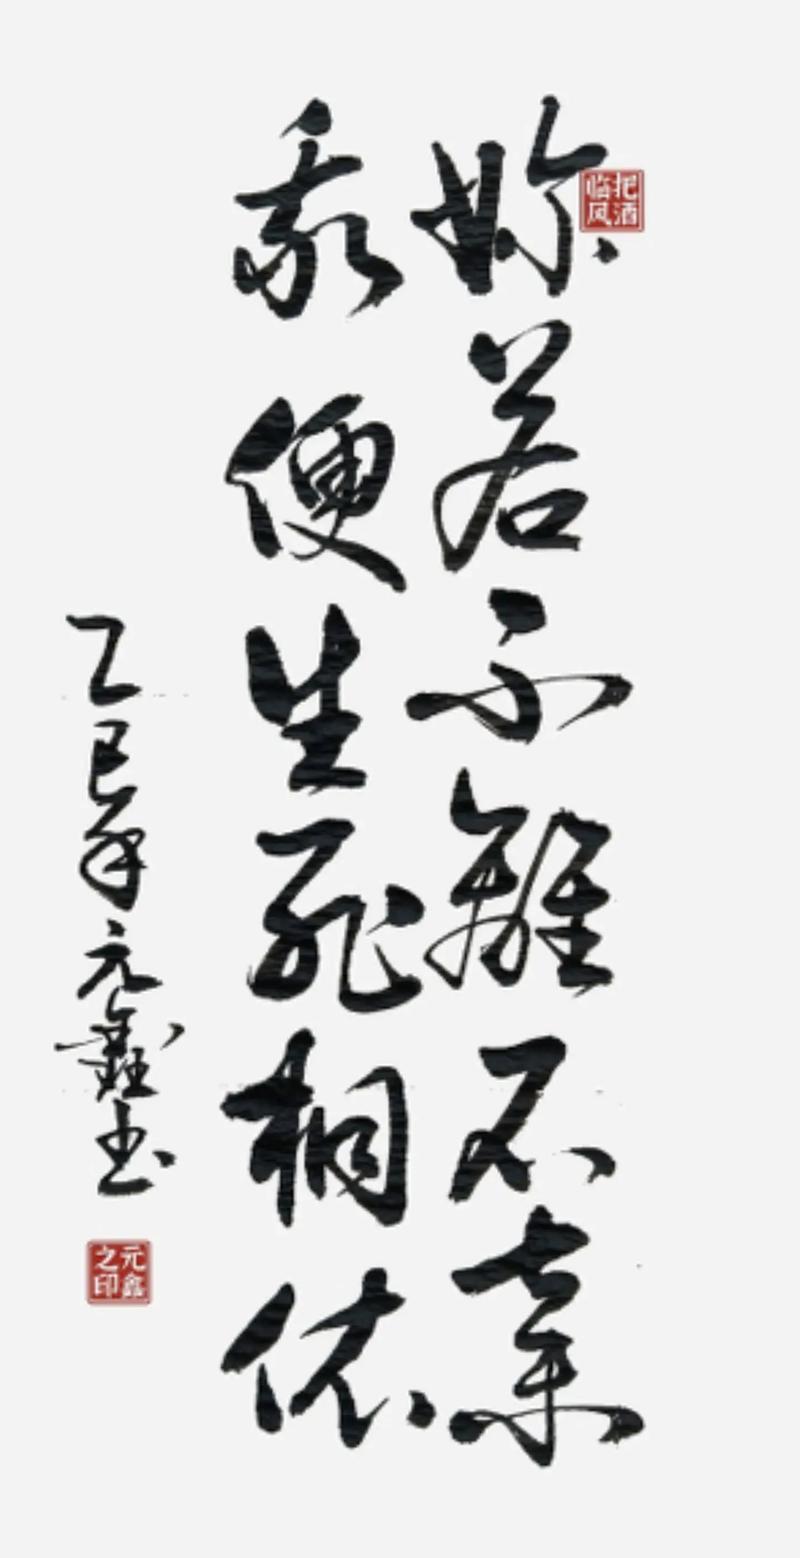 妳若不離不棄
把酒临风
我便生死相依
乙巳年元鑫书
元鑫之印